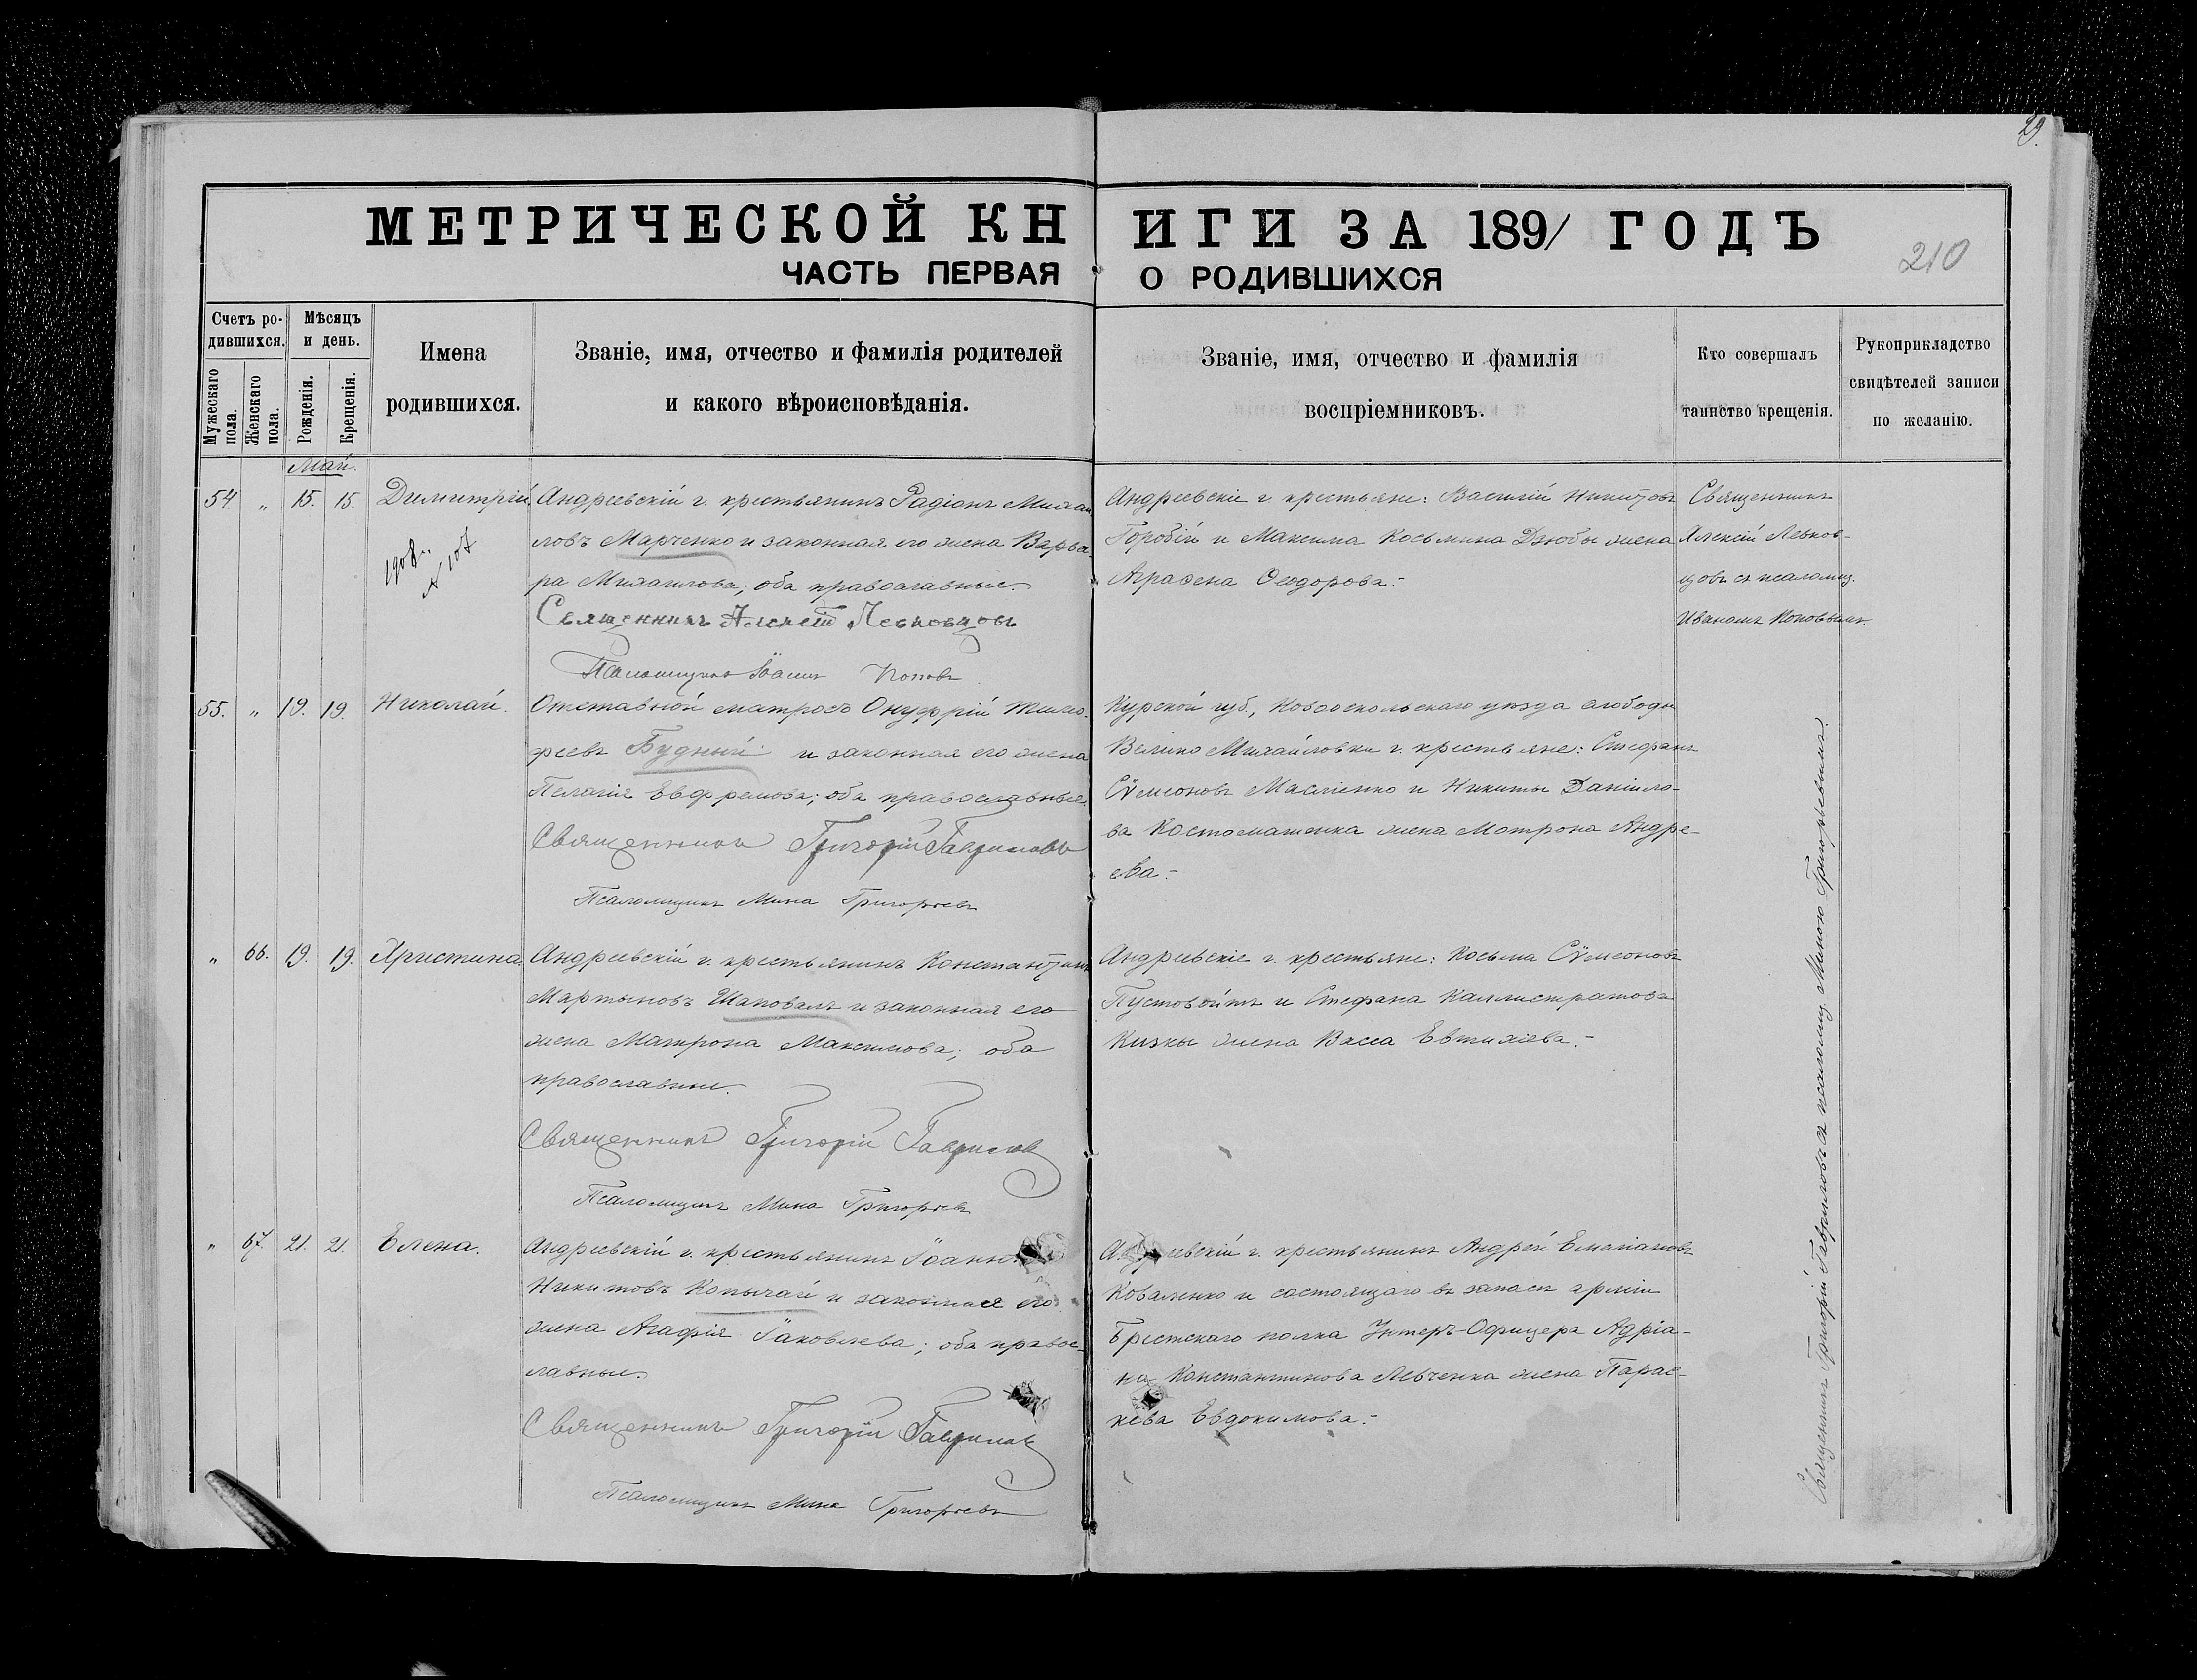 29.
МЕТРИЧЕСКОЙ КНИГИ ЗА 1891 ГОДЪ
210
ЧАСТЬ ПЕРВАЯ О РОДИВШИХСЯ
Счетъ родившихся.
Мужескаго пола.
Женскаго пола.
Мѣсяцъ и день.
Рожденія.
Крещенія.
Имена родившихся.
Званіе, имя, отчество и фамилія родителей
и какого вѣроисповѣданія.
Званіе, имя, отчество и фамилія
воспріемниковъ.
Кто совершалъ
таинство крещенія.
Рукоприкладство
свидѣтелей записи
по желанію.
Май.
54. " 15. 15. Димитрій.
1908г.
№ 107
Андреевскій г. крестьянинъ Радіонъ Михаи
ловъ Марченко и законная его жена Варва-
ра Михаилова; оба православные.
Священникъ Алексій Левковцовъ
Псаломщикъ Іоаннъ Поповъ
Андреевскіе г. крестьяне: Василій Никитовъ
Горобій и Максима Косьмина Дзюбы жена
Аграфена Ѳеодорова.-
Священникъ
Алексій Левков-
цовъ съ псаломщ.
Иваномъ Поповымъ.
55. " 19. 19. Николай.
Отставной матросъ Онуфрій Тимо-
ѳеевъ Будный и законная его жена
Пелагія Евфремова; оба православные.
Священникъ Григорій Гавриловъ
Псаломщикъ Мина Григорьевъ
Курской губ., Новооскольскаго уѣзда слободы
Велико Михайловки г. крестьяне: Стефанъ
Сѵмеоновъ Масліенко и Никиты Даніило-
ва Костоматенка жена Мотрона Андре-
ева.-
" 66. 19. 19. Христина.
Андреевскій г. крестьянинъ Константинъ
Мартыновъ Шаповалъ и законная его
жена Матрона Максимова; оба
православные.
Священникъ Григорій Гавриловъ
Псаломщикъ Мина Григорьевъ
Андреевскіе г. крестьяне: Косьма Сѵмеоновъ
Пустовойтъ и Стефана Каллистратова
Кизкы жена Васса Евтихіева.-
" 67. 21. 21. Елена.
Андреевскій г. крестьянинъ Іоаннъ
Никитовъ Копычай и законная его
жена Агафія Іаковлева; оба правос-
лавные.
Священникъ Григорій Гавриловъ
Псаломщикъ Мина Григорьевъ
Андреевскій г. крестьянинъ Андрей Емиліановъ
Коваленко и состоящаго въ запасѣ арміи
Брестскаго полка Унтеръ-Офицера Адріа-
на Константинова Левченка жена Парас-
кева Евдокимова.-
Священникъ Григорій Гавриловъ съ псаломщ. Миною Григорьевымъ.